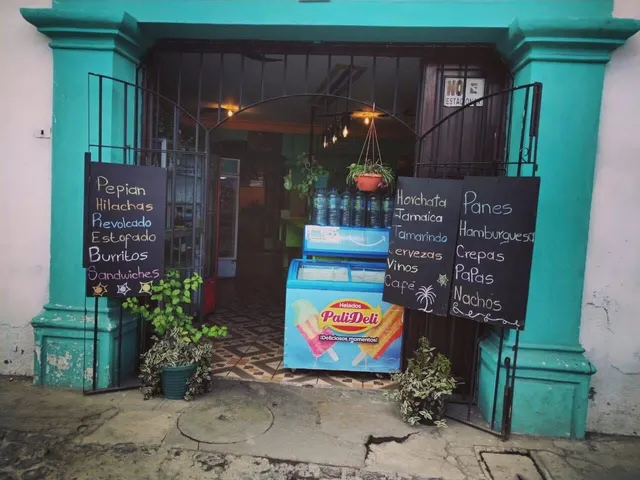 NO
ESTACIONAR
Pepian
Hilachas
Revolcado
Estofado
Burritos
Sandwiches
Horchata
Jamaica
Tamarindo
Cervezas
Vinos
Café
Panes
Hamburguesa
Crepas
Papas
Nachos
Helados
PaliDeli
¡Deliciosos momentos!